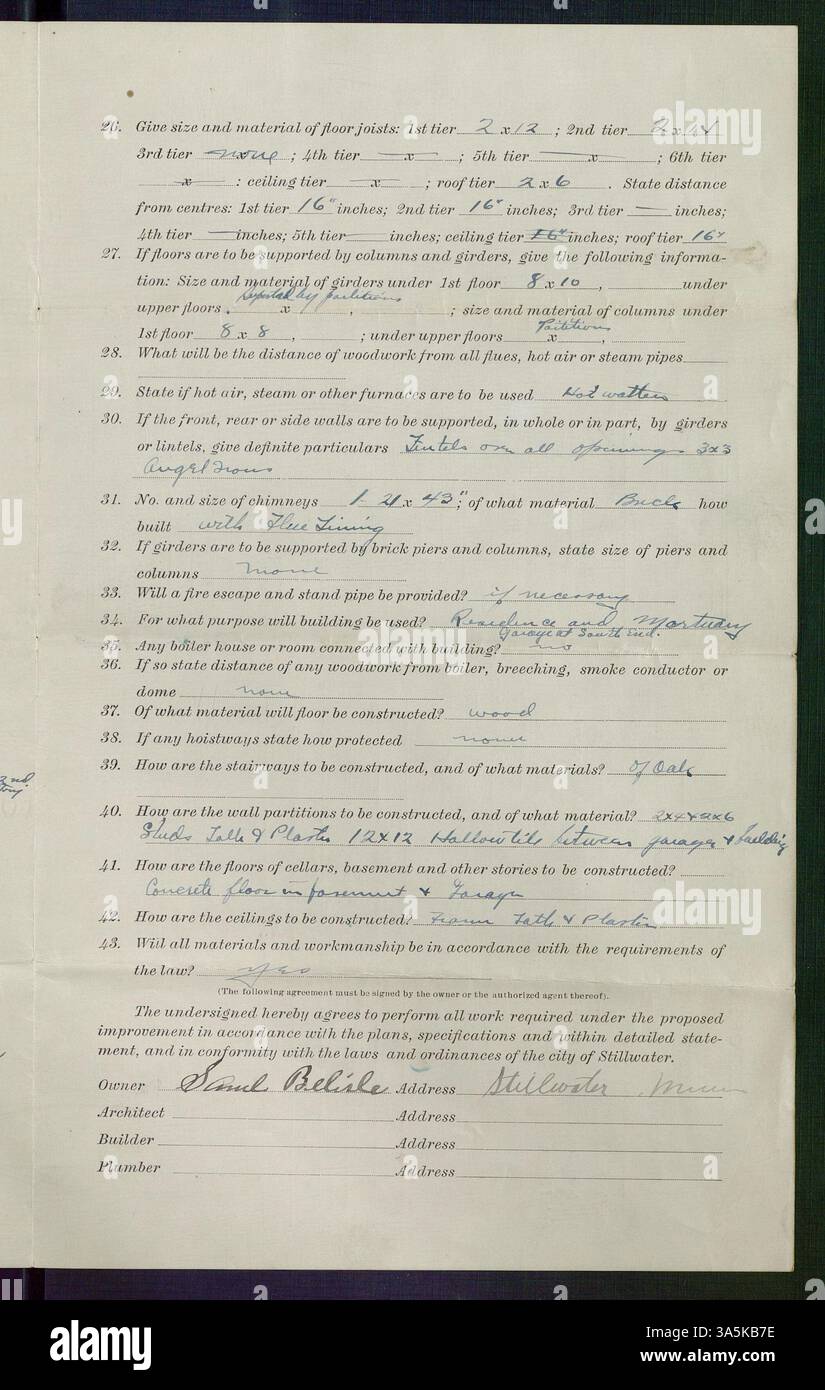 26. Give size and material of floor joists: 1st tier 2 x 12 ; 2nd tier 2 x 14
3rd tier none ; 4th tier — x — ; 5th tier — x — ; 6th tier
— x — : ceiling tier — x — ; roof tier 2 x 6 . State distance
from centres: 1st tier 16" inches; 2nd tier 16" inches; 3rd tier — inches;
4th tier — inches; 5th tier — inches; ceiling tier 16" inches; roof tier 16"
27. If floors are to be supported by columns and girders, give the following informa-
tion: Size and material of girders under 1st floor 8 x 10 , under
upper floors . Suported by partitions x , ; size and material of columns under
1st floor 8 x 8 , ; under upper floors Partitions x ,
28. What will be the distance of woodwork from all flues, hot air or steam pipes
29. State if hot air, steam or other furnaces are to be used Hot watter
30. If the front, rear or side walls are to be supported, in whole or in part, by girders
or lintels, give definite particulars Lintels over all openings 3x3
Angel Irons
31. No. and size of chimneys 1 - 21 x 43"; of what material Brick how
built with Flue Lining
32. If girders are to be supported by brick piers and columns, state size of piers and
columns none
33. Will a fire escape and stand pipe be provided? if necessary
34. For what purpose will building be used? Residence and Mortuary
Garage at South End.
35. Any boiler house or room connected with building? no
36. If so state distance of any woodwork from boiler, breeching, smoke conductor or
dome none
37. Of what material will floor be constructed? wood
38. If any hoistways state how protected none
39. How are the stairways to be constructed, and of what materials? of Oak
2nd
story
40. How are the wall partitions to be constructed, and of what material? 2x4 & 2x6
Studs Lath & Plaster 12x12 Hollow tile between garage & building
41. How are the floors of cellars, basement and other stories to be constructed?
Concrete floor in basement & Garage
42. How are the ceilings to be constructed? Frame Lath & Plaster
43. Will all materials and workmanship be in accordance with the requirements of
the law? yes
(The following agreement must be signed by the owner or the authorized agent thereof).
The undersigned hereby agrees to perform all work required under the proposed
improvement in accordance with the plans, specifications and within detailed state-
ment, and in conformity with the laws and ordinances of the city of Stillwater.
Owner Saml Belisle Address Stillwater Minn
Architect Address
Builder Address
Plumber Address
alamy
Image ID: 3A5KB7E
www.alamy.com